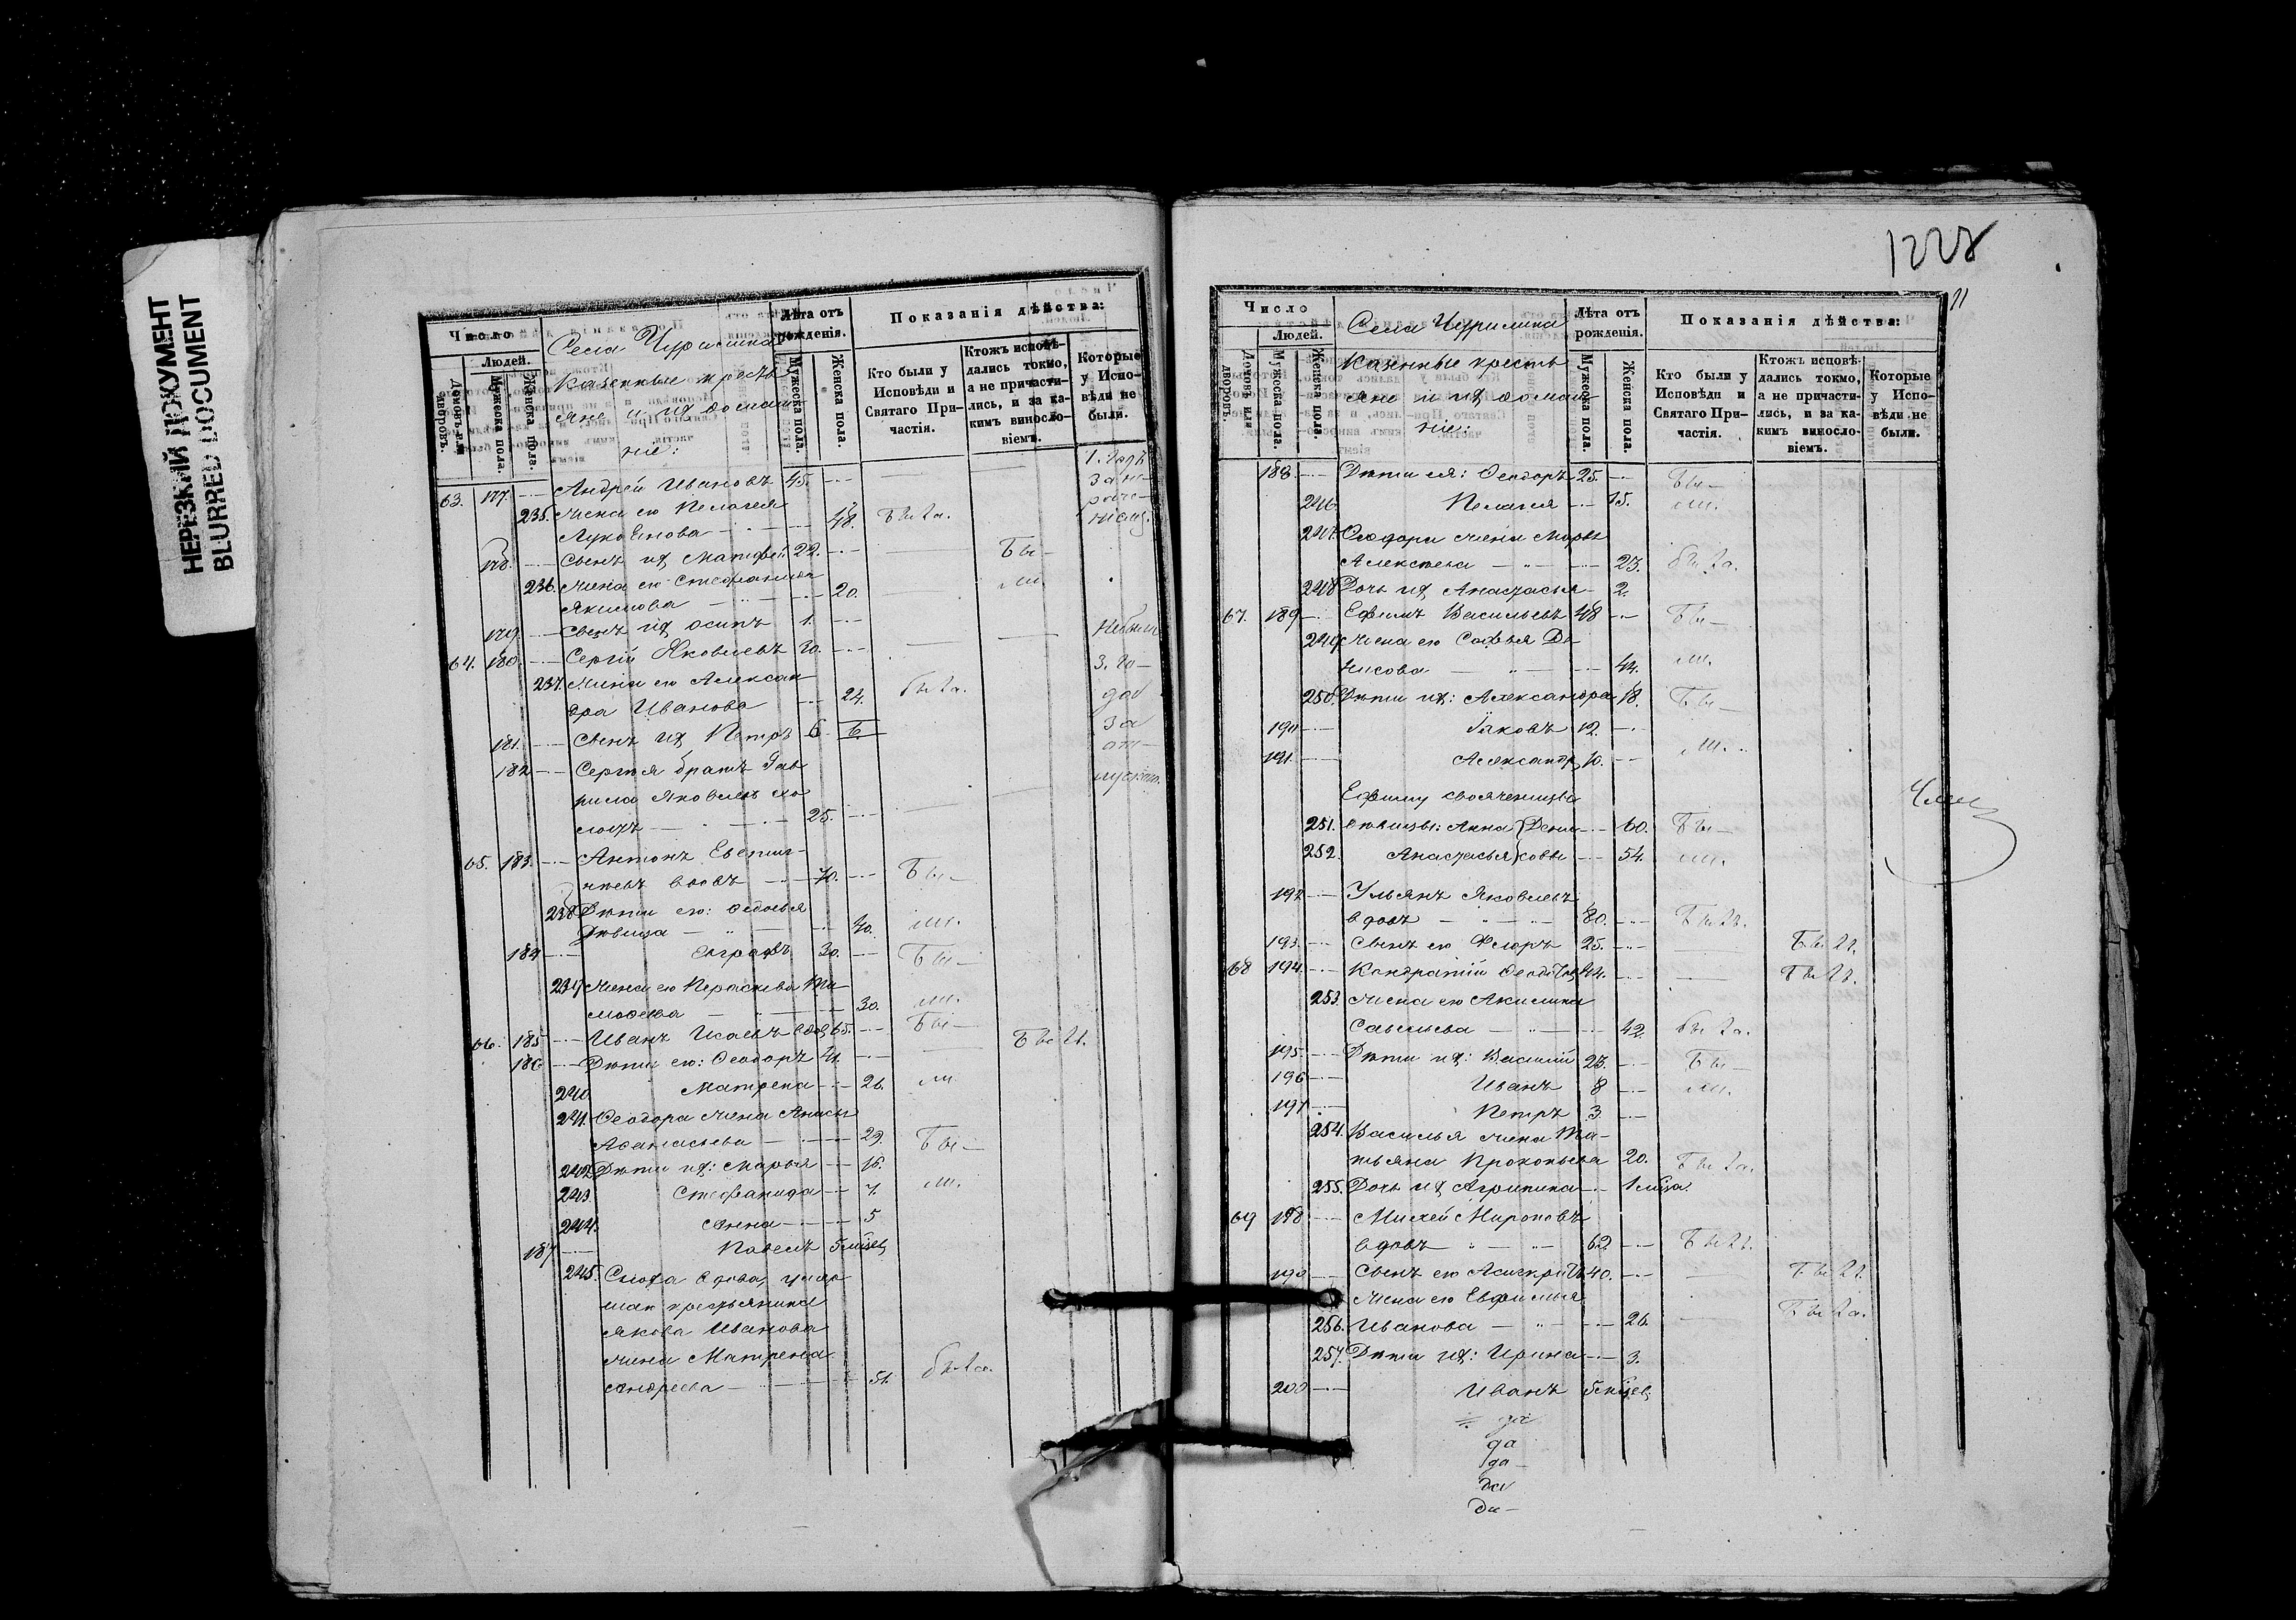 НЕРЕЗКИЙ ДОКУМЕНТ
BLURRED DOCUMENT
Число
Людей.
Домовъ или дворовъ.
Мужеска пола.
Женска пола.
Села Чурилина
казенные кресть
яне и ихъ домаш
ніе:
Лѣта отъ рожденія.
Мужеска пола.
Женска пола.
Показанія дѣйства:
Кто были у Исповѣди и Святаго Причастія.
Ктожъ исповѣдались токмо, а не причастились, и за какимъ винословіемъ.
Которые у Исповѣди не были.
63. 177. Андрей Ивановъ 45.
235. Жена его Пелагея
Лукоянова 48. была.
178. Сынъ ихъ Матфей 22. Бы-
236. Жена его Стефанида
Якимова 20. ли.
179. Сынъ ихъ Осипъ 1.
64. 180. Сергій Яковлевъ 30. Небыли
237. Жена его Алексан 3. го-
дра Иванова 24. была. да
181. Сынъ ихъ Петръ 6 за
182 Сергѣя братъ Гав от-
рила Яковлевъ хо
лостъ 25.
65. 183. Антонъ Евстиг-
нѣевъ вдовъ 70. Бы-
238 Дѣти его: Федосья
Дѣвица 40. ли.
184 Евграфъ 30. Бы-
239 Жена его Параскева Ти-
мофеева 30. ли.
66. 185 Иванъ Исаевъ вдов. 65. Бы-
186 Дѣти его: Феодоръ 31. Былъ.
240 Матрена 26. ли.
241. Феодора жена Анисья
Афанасьева 29. Бы-
242 Дѣти ихъ: Марья 16.
243. Стефанида 7. ли.
244. Анна 5
187 Павелъ 5 мѣсяцев
245. Сноха вдова, умер
шаго крестьянина
Якова Иванова
жена Матрена
Андреева 51. была.
1228
71
Число
Людей.
Домовъ или дворовъ.
Мужеска пола.
Женска пола.
Села Чурилина
казенные кресть
яне и ихъ домаш
ніе:
Лѣта отъ рожденія.
Мужеска пола.
Женска пола.
Показанія дѣйства:
Кто были у Исповѣди и Святаго Причастія.
Ктожъ исповѣдались токмо, а не причастились, и за какимъ винословіемъ.
Которые у Исповѣди не были.
188. Дѣти ея: Феодоръ 25. Бы-
246. Пелагея 15. ли.
247. Феодора жена Марья
Алексѣева 23. была.
248 Дочь ихъ Анастасья 2.
67. 189 Ефимъ Васильевъ 48 Бы-
249 Жена его Софья Де
нисова 44. ли.
250. Дѣти ихъ: Александра 18. Бы-
190 Іаковъ 12.
191. Александръ 10. ли.
Ефиму свояченицы
251. дѣвицы: Анна Дени 60. Бы-
252. Анастасья совы 54. ли.
192 Ульянъ Яковлевъ
вдовъ 80. Былъ.
193. Сынъ его Флоръ 25. Былъ.
68 194 Кондратій Феодотовъ 44. Былъ.
253. Жена его Акилина
Савельева 42. была.
195 Дѣти ихъ: Василій 23. Бы-
196 Иванъ 8 ли.
197 Петръ 3
254. Василья жена Та-
тьяна Прокопьева 20. Была.
255. Дочь ихъ Агрипина 1 мѣсяца.
69 198 Михей Мироновъ
вдовъ 62. Былъ.
199 Сынъ его 40. Былъ.
Жена его Евфимья
256. Иванова 26. Была.
257. Дѣти ихъ: Ирина 3.
200 Иванъ 5 мѣсяцев
да
да
да
да
да